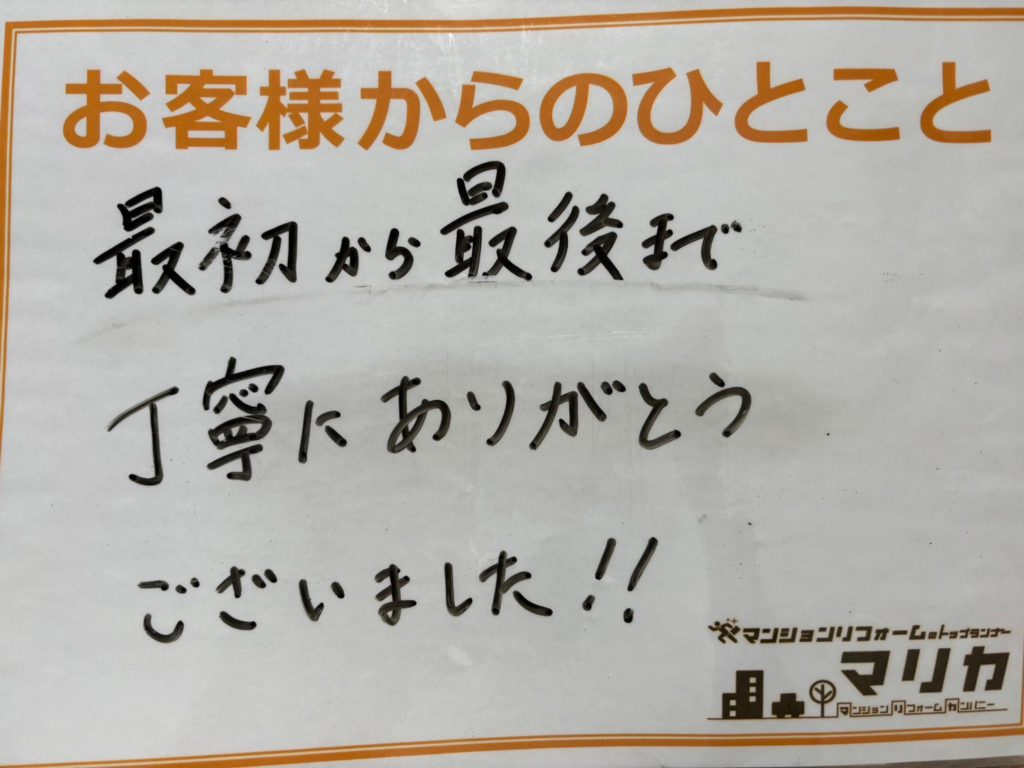 お客様からのひとこと
最初から最後まで
丁寧にありがとう
ございました!!
マンションリフォームのトップランナー
マリカ
マンションリフォームカンパニー